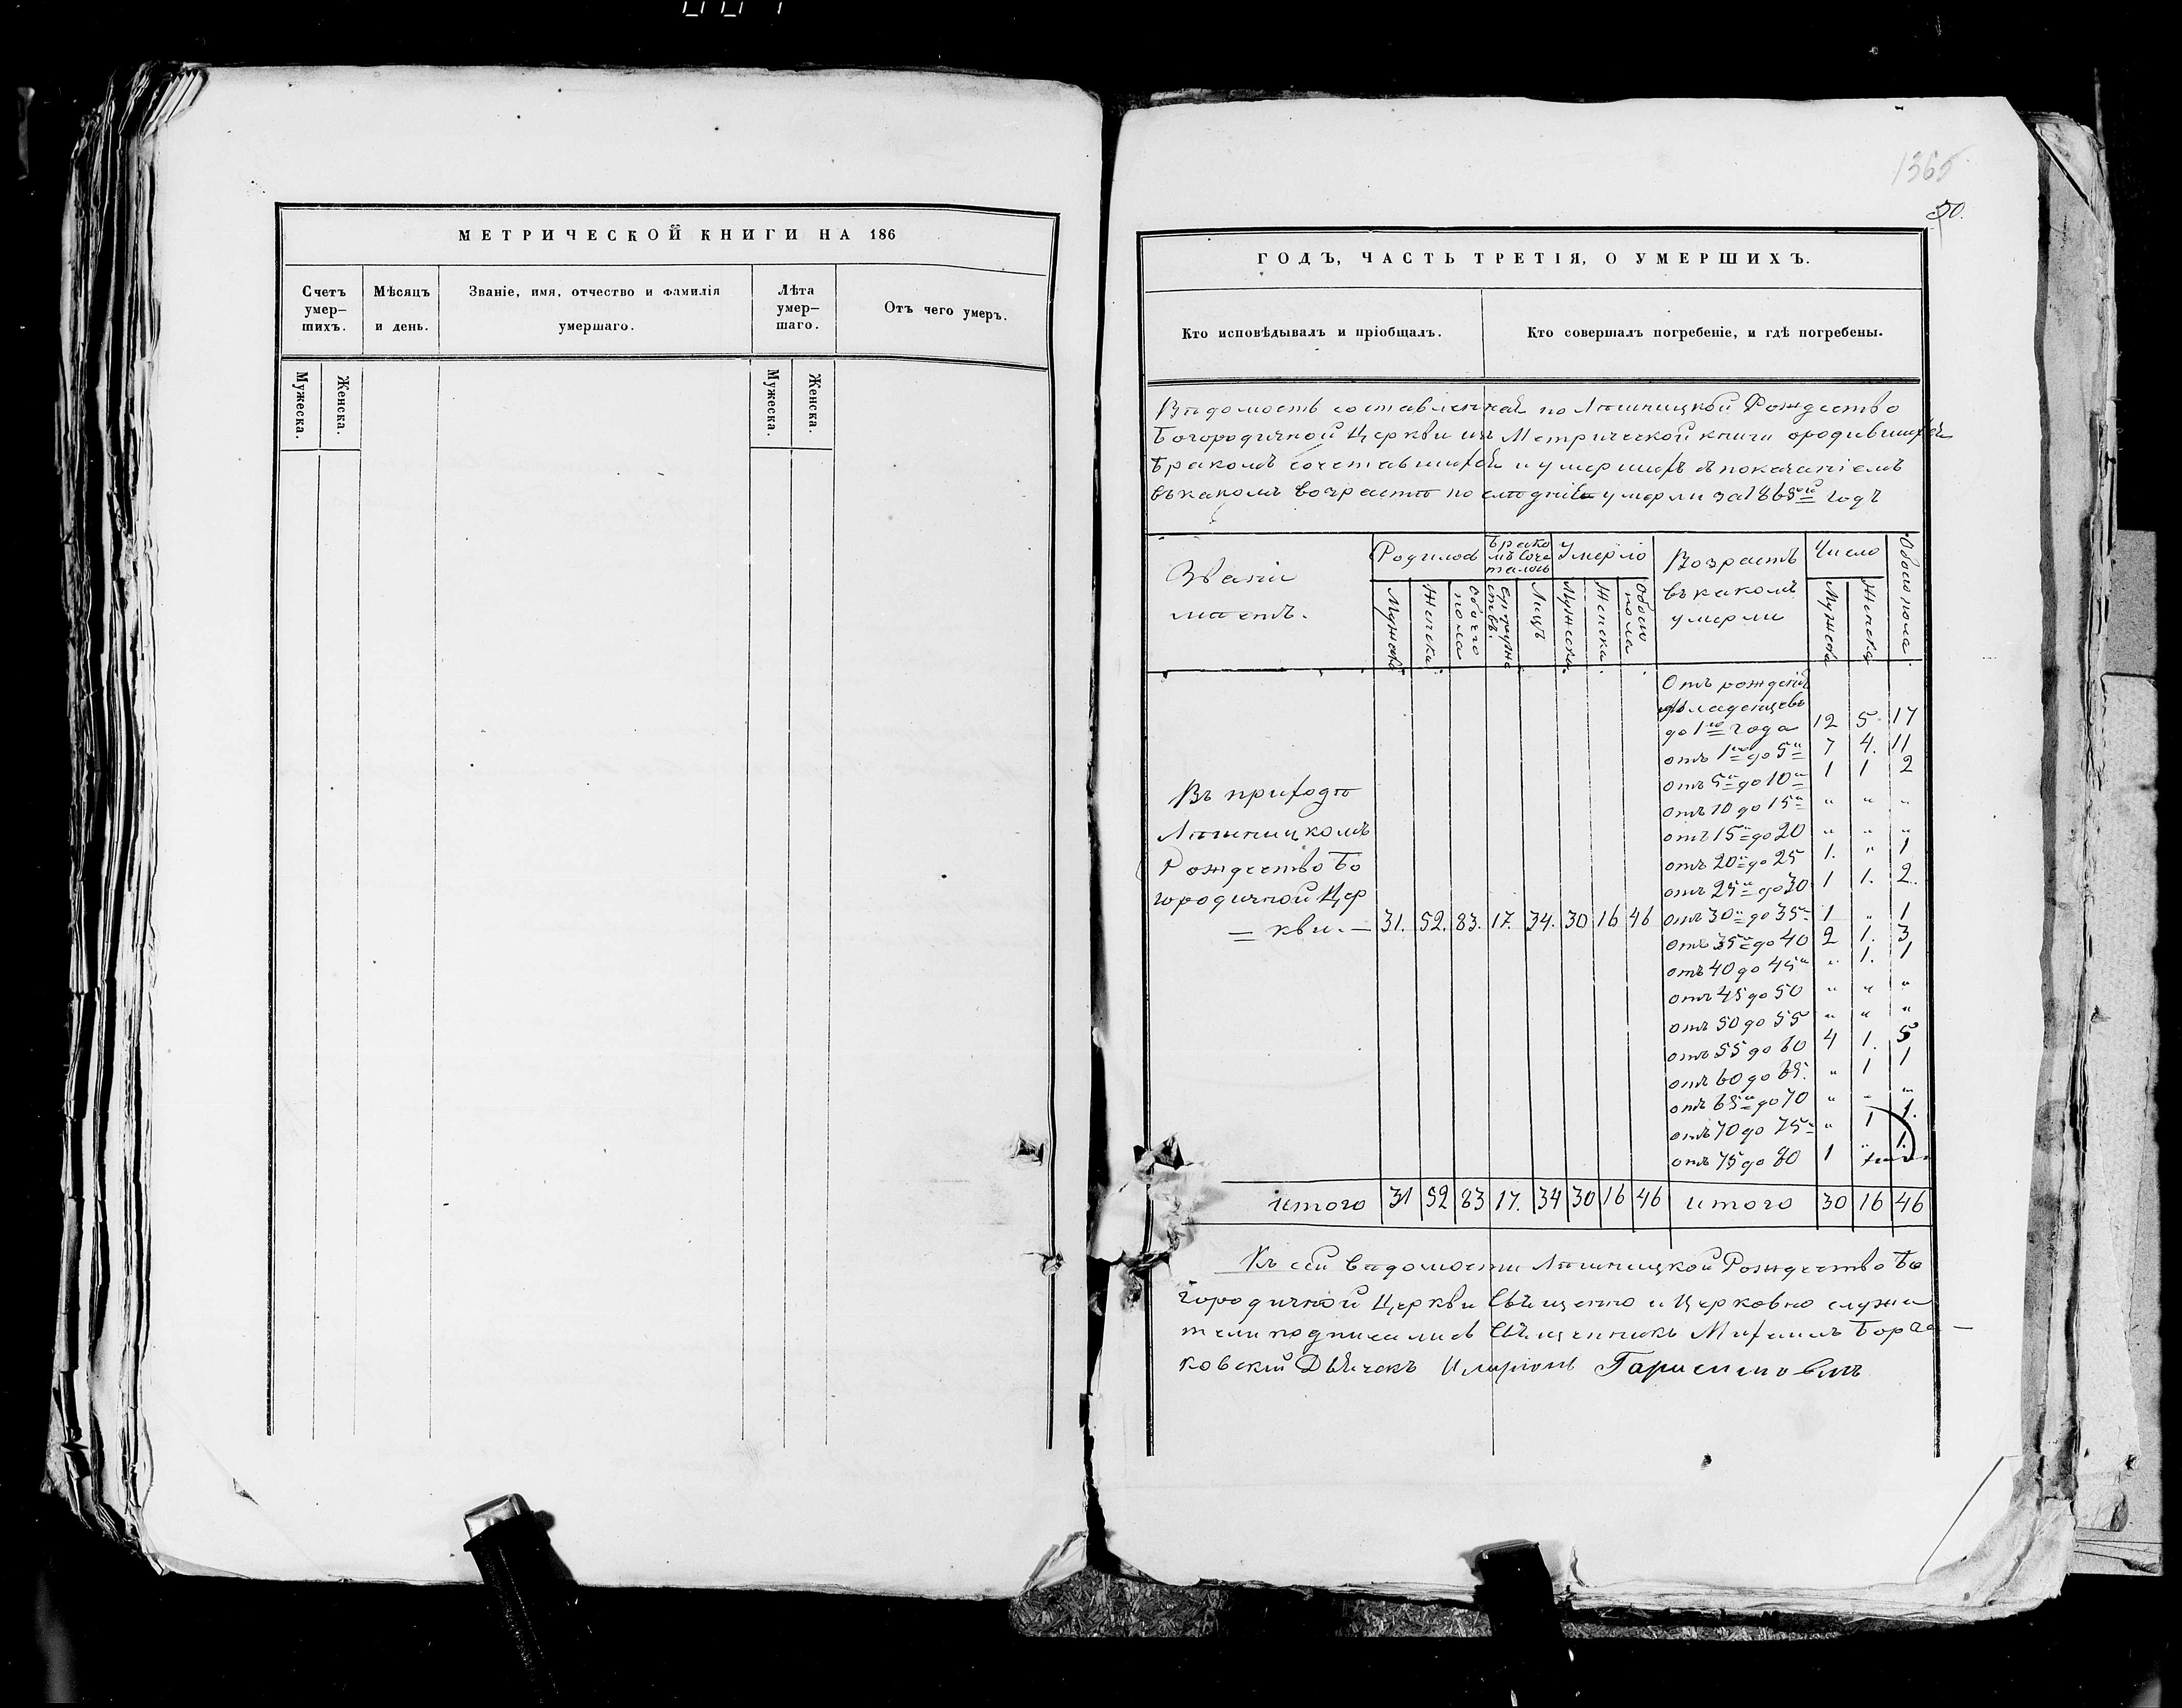 МЕТРИЧЕСКОЙ КНИГИ НА 186
Счетъ умер–шихъ.
Мѣсяцъ и день.
Званіе, имя, отчество и фамилія умершаго.
Лѣта умер–шаго.
Отъ чего умеръ.
Мужеска.
Женска.
Мужеска.
Женска.
1365
50.
ГОДЪ, ЧАСТЬ ТРЕТІЯ, О УМЕРШИХЪ.
Кто исповѣдывалъ и пріобщалъ.
Кто совершалъ погребеніе, и гдѣ погребены.
Вѣдомость составленная по Лѣшницкой Рождество
Богородичной Церкви изъ Метрической книги о родившихся
Бракомъ сочетавшихся и умершихъ съ показаніемъ
въ какомъ возрастѣ послѣдніе умерли за 1865ый годъ
Званіе мѣстъ.
Родилось
Бракомъ сочеталось
Умерло
Возрастъ въ какомъ умерли
Число
Обоего пола
Мужеска
Женска
Обоего пола
Супружествъ.
Лицъ
Мужеска
Женска
Обоего пола
Мужеска
Женска
Отъ рожденія
младенцевъ
до 1го года 12 5 17
отъ 1го до 5и 7 4. 11
отъ 5и до 10и 1 1 2
отъ 10 до 15и " " "
отъ 15и до 20 " " "
отъ 20и до 25 1. " 1
отъ 25и до 30 1 1. 2.
Въ приходѣ
Лѣшницкомъ
Рождество Бо
городичной Цер
= кви. — 31. 52. 83. 17. 34. 30 16 46 отъ 30и до 35и 1 " 1
отъ 35и до 40 2 1. 3
отъ 40 до 45и " 1. 1
отъ 45 до 50 " " "
отъ 50 до 55 " " "
отъ 55 до 60 4 1. 5
отъ 60 до 65. " 1 1
отъ 65и до 70 " " "
отъ 70 до 75и " 1 1.
отъ 75 до 80 1 " 1.
итого 31 52 83 17. 34 30 16 46 итого 30 16 46
Къ сей вѣдомости Лѣшницкой Рождество Бо
городичной Церкви Священно и Церковно служи
тели подписались Священникъ Михаилъ Борза —
ковскій Дьячекъ Иларіонъ Гарисимовичъ